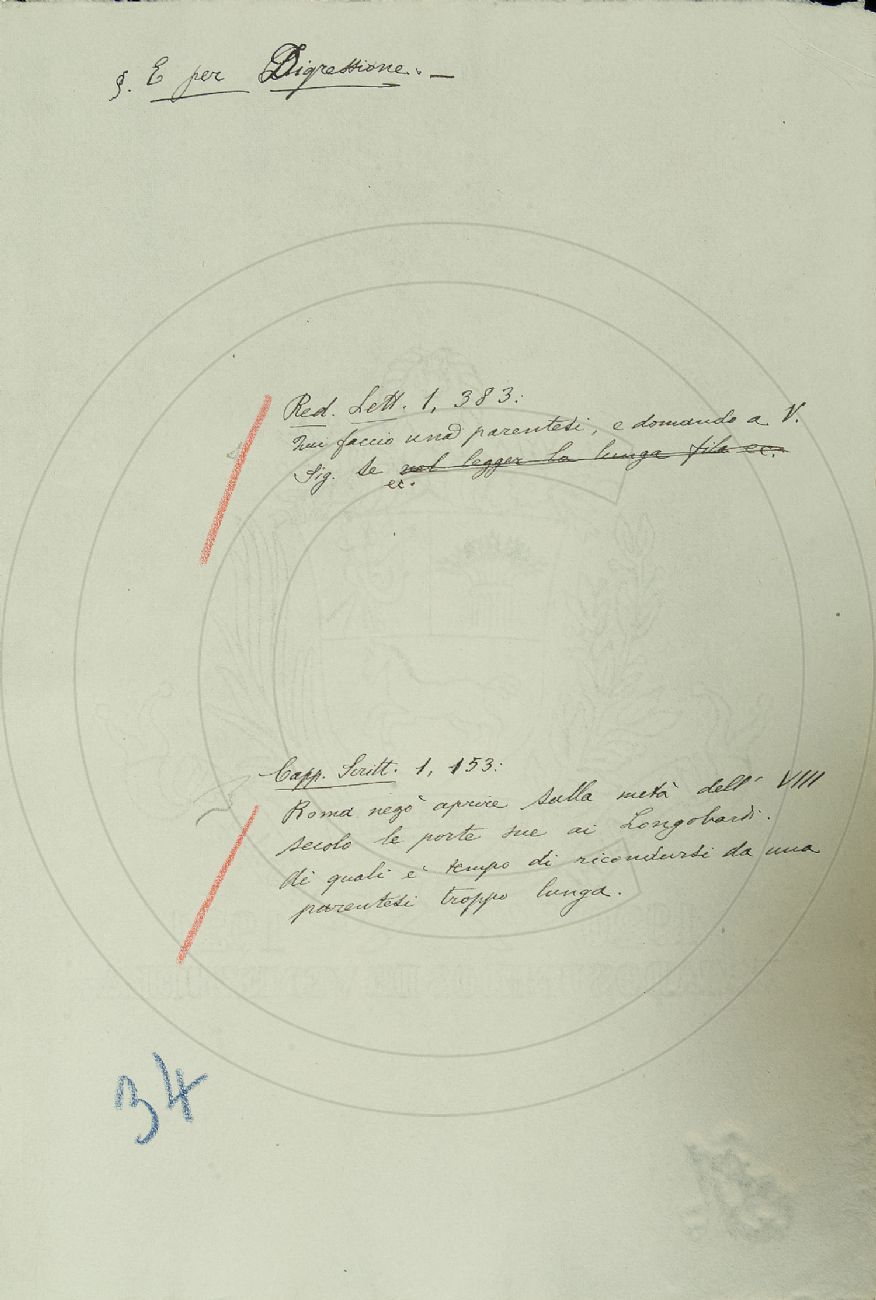 §. E per Digressione. —
Red. Lett. 1, 383:
Qui faccio una parentesi, e domando a V.
Sig. se nel legger la lunga fila ec.
ec.
Capp. Scritt. 1, 153:
Roma negò aprire sulla metà dell' VIII
secolo le porte sue ai Longobardi.
di quali è tempo di ricondursi da una
parentesi troppo lunga.
34